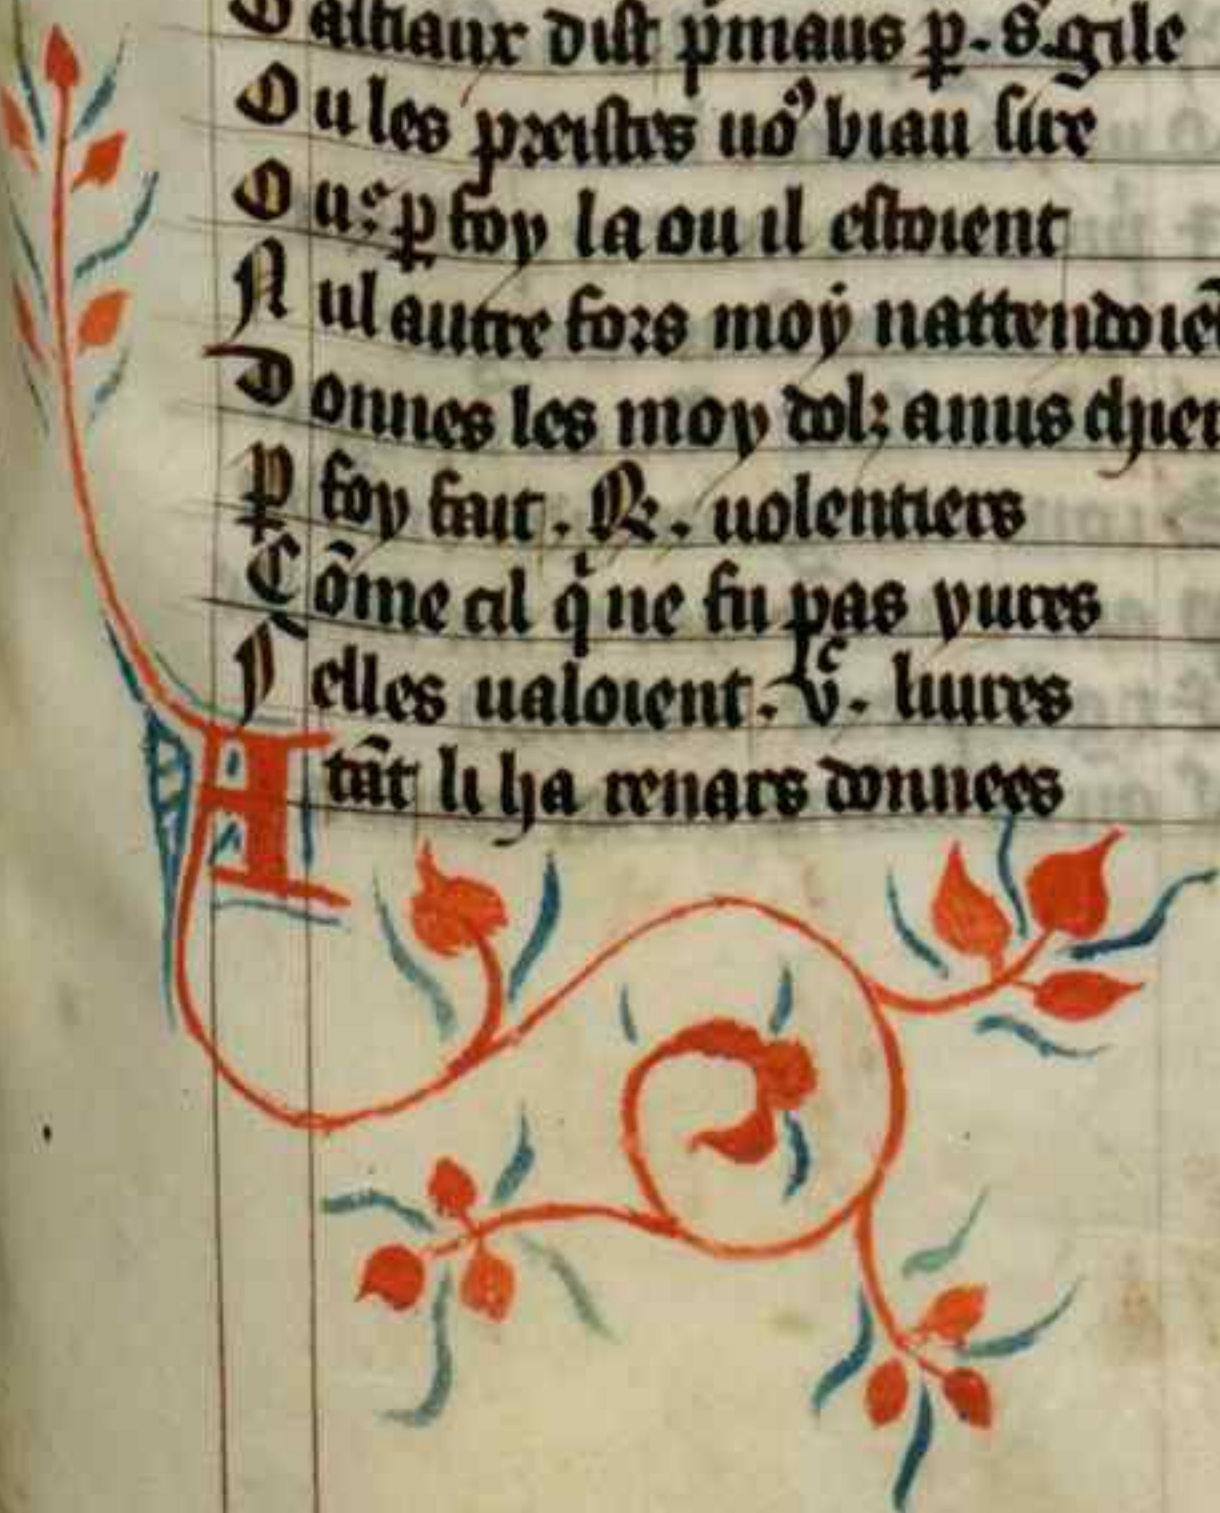 aitiaux dist pͥmaus ꝑ. S. gile
Ou les preistes uoꝰ biau sire
Ou. c. ꝑ foy la ou il estoient
Nul autre fors moy nattendoiēt
Donnes les moy dolz amis chier
Ꝑ foy fait . R. uolentiers
Cōme cil qͥ ne fu pas yures
Selles ualoient . v.ᶜ liures
Atāt li ha renars donnees